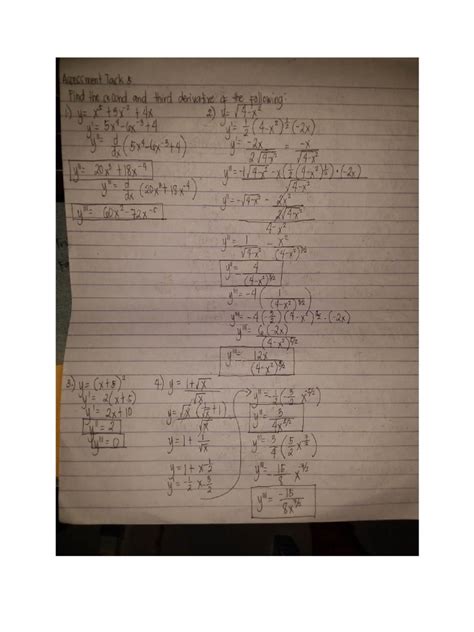 Assessment Task 3
Find the second and third derivative of the following:
1) y = x⁵ + 3x⁻² + 4x
y' = 5x⁴ - 6x⁻³ + 4
y'' = d/dx (5x⁴ - 6x⁻³ + 4)
y'' = 20x³ + 18x⁻⁴
y''' = d/dx (20x³ + 18x⁻⁴)
y''' = 60x² - 72x⁻⁵
2) y = √4-x²
y' = 1/2 (4-x²)^½ (-2x)
y' = -2x / 2√4-x² = -x / √4-x²
y'' = -1√4-x² - x(½ (4-x²)^½) · (-2x) / √4-x²
y'' = -√4-x² - 2x² / 2√4-x² / 4-x²
y'' = 1/√4-x² - x²/(4-x²)^3/2
y'' = 4/(4-x²)^3/2
y''' = -4 (1/(4-x²)^3/2)
y''' = 6(-2x)/(4-x²)^5/2
y''' = 12x/(4-x²)^5/2
3) y = (x+5)²
y' = 2(x+5)
y' = 2x+10
y'' = 2
y''' = 0
4) y = 1+√x / √x
y = √x (1/√x + 1) / √x
y = 1 + 1/√x
y = 1 + x^-½
y' = -½ x^-3/2
y'' = 3/4x^5/2
y''' = -15/8 x^-7/2
y''' = -15/8x^7/2